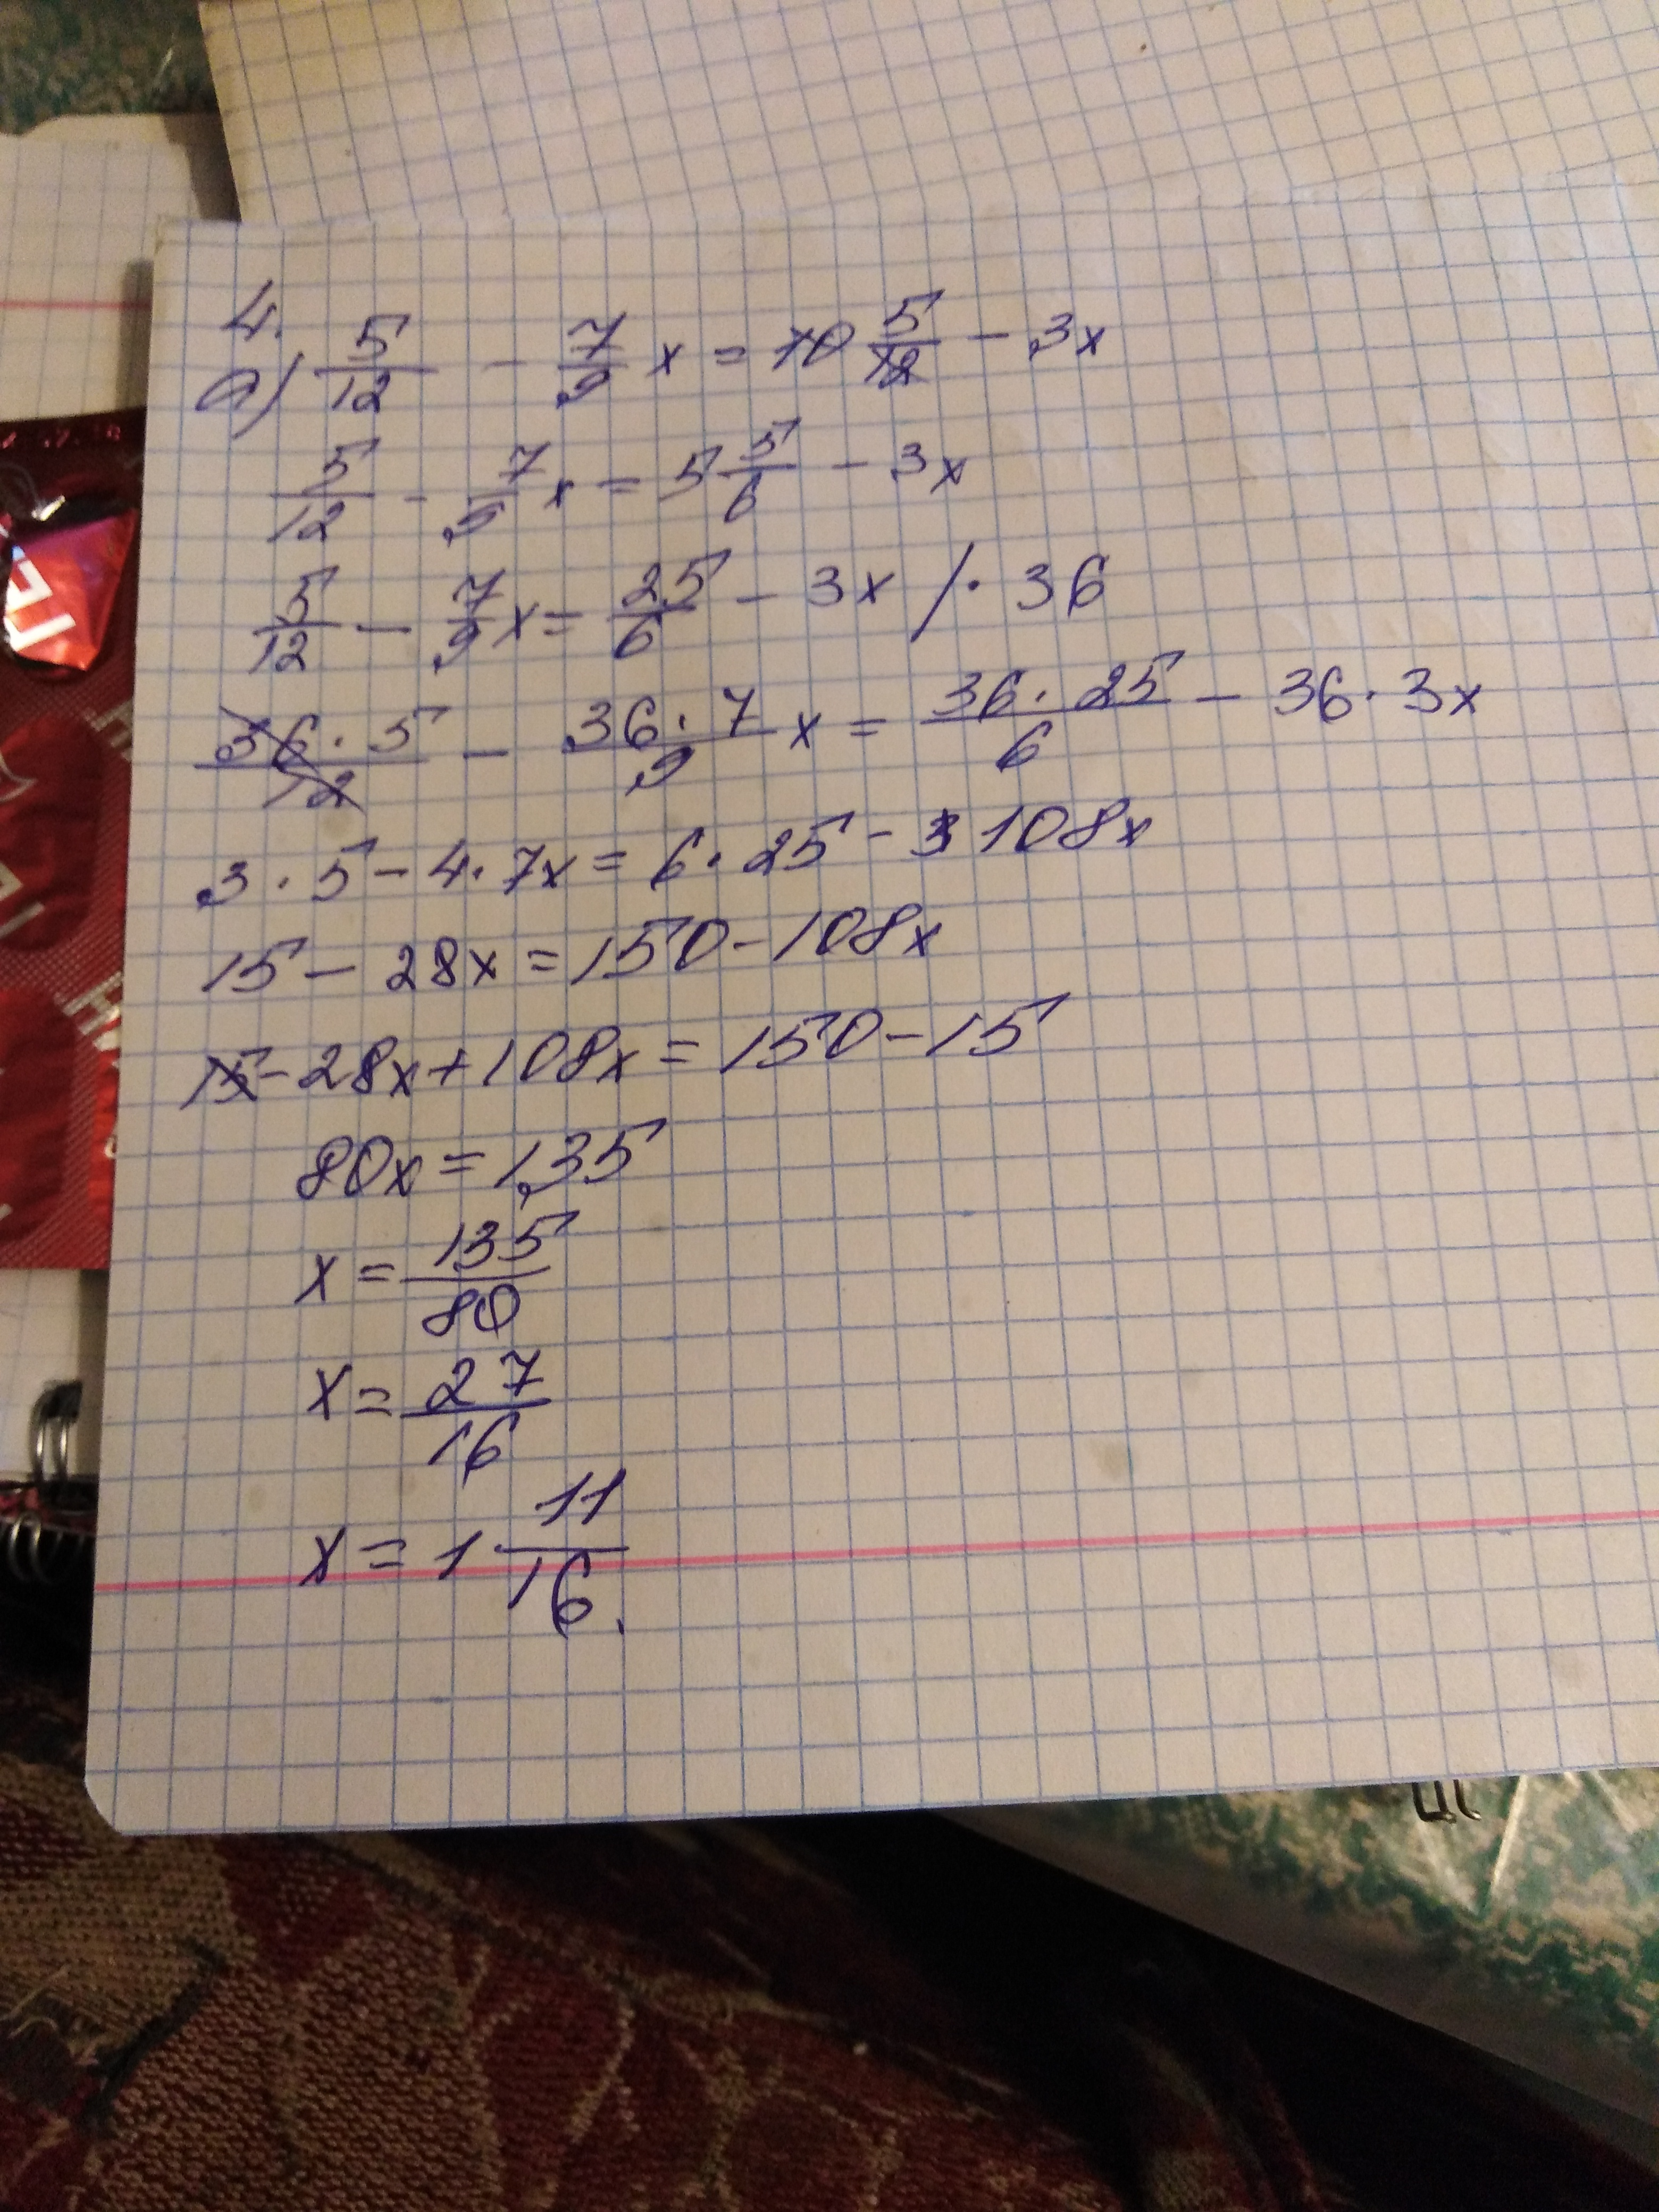 4.
а) 5/12 - 7/9 x = 10 5/12 - 3x
5/12 - 7/9 x = 5 5/6 - 3x
5/12 - 7/9 x = 25/6 - 3x /· 36
36·5/12 - 36·7/9 x = 36·25/6 - 36·3x
3·5 - 4·7x = 6·25 - 108x
15 - 28x = 150 - 108x
15 - 28x + 108x = 150 - 15
80x = 135
x = 135/80
x = 27/16
x = 1 11/16.